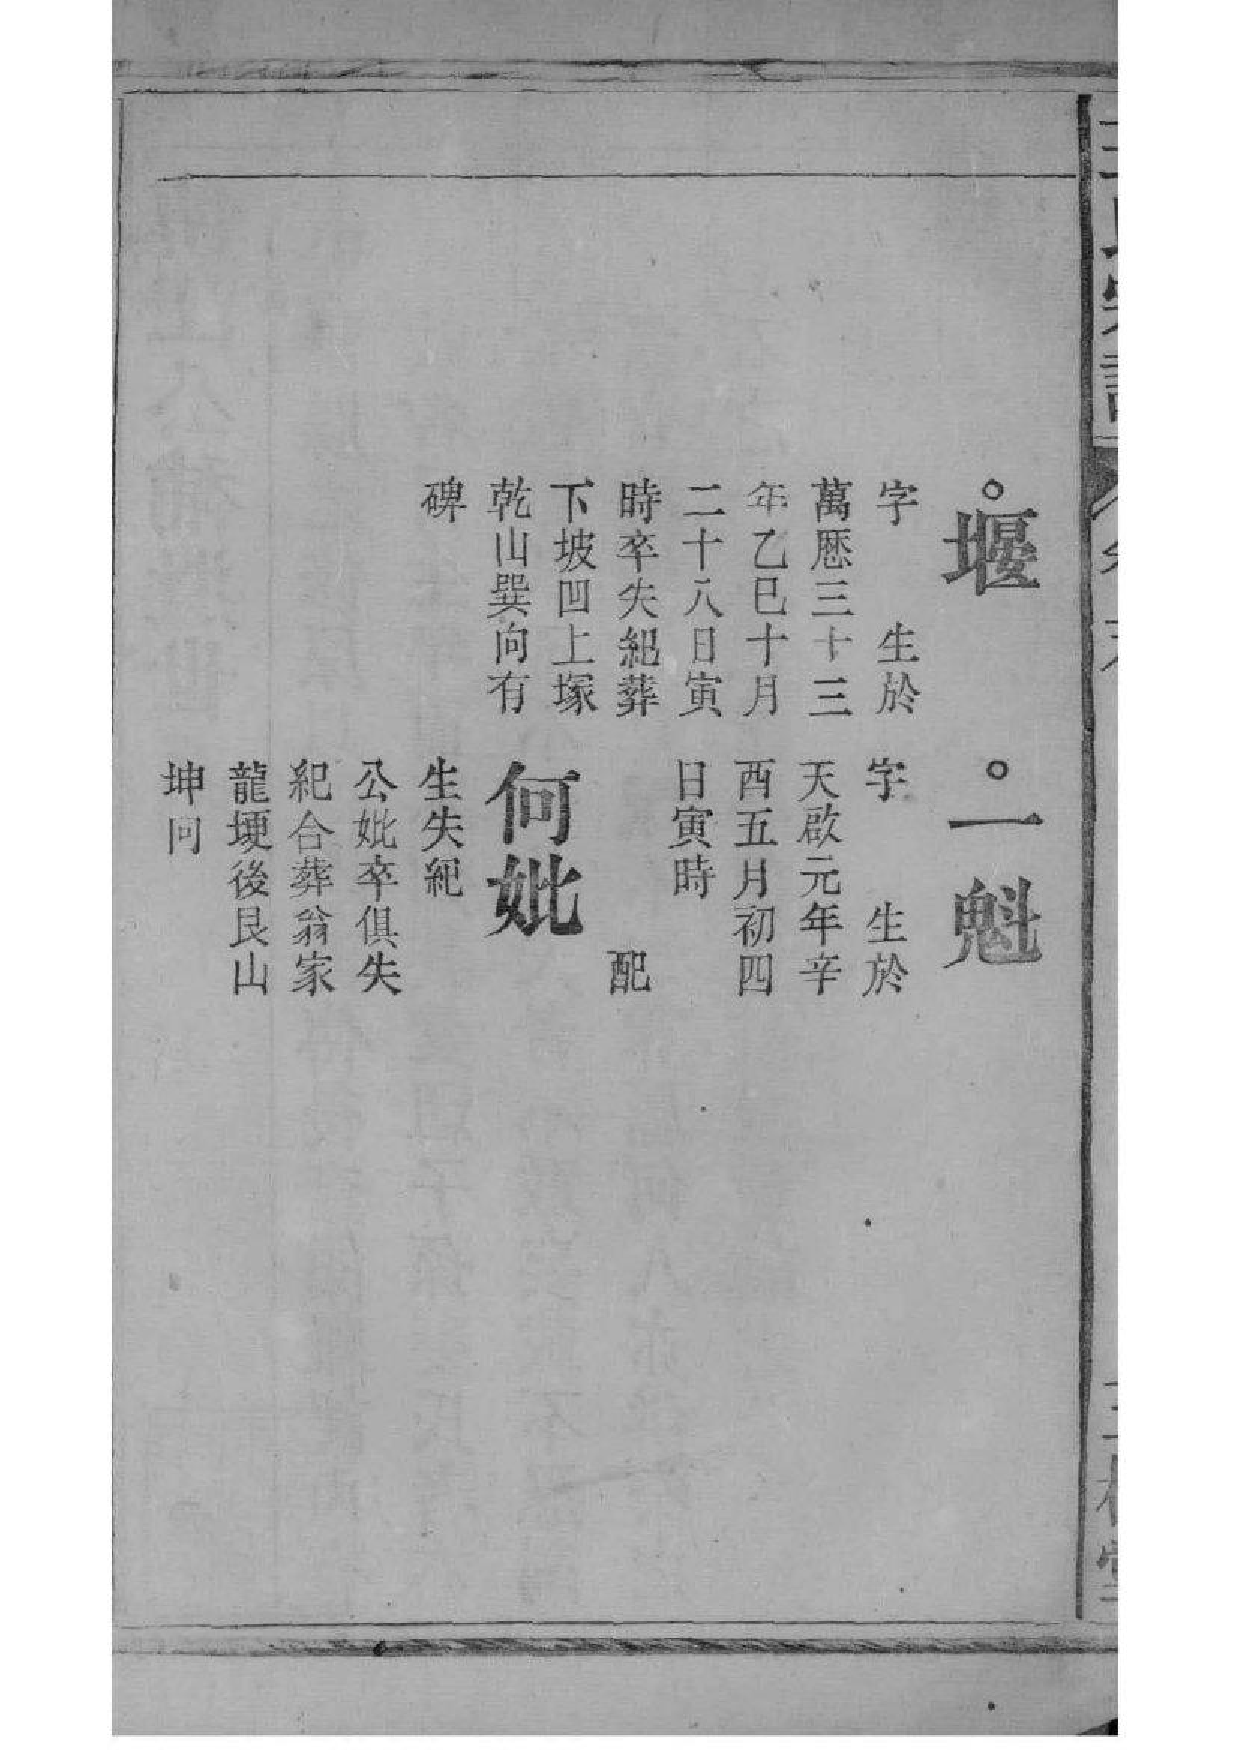 王氏宗譜
三槐堂
堰
字 生於
萬厯三十三
年乙巳十月
二十八日寅
時卒失紀葬
下坡凹上塚
乾山巽向有
碑
一魁
字 生於
天啟元年辛
酉五月初四
日寅時
配
何妣
生失紀
公妣卒俱失
紀合葬翁家
龍埂後艮山
坤向